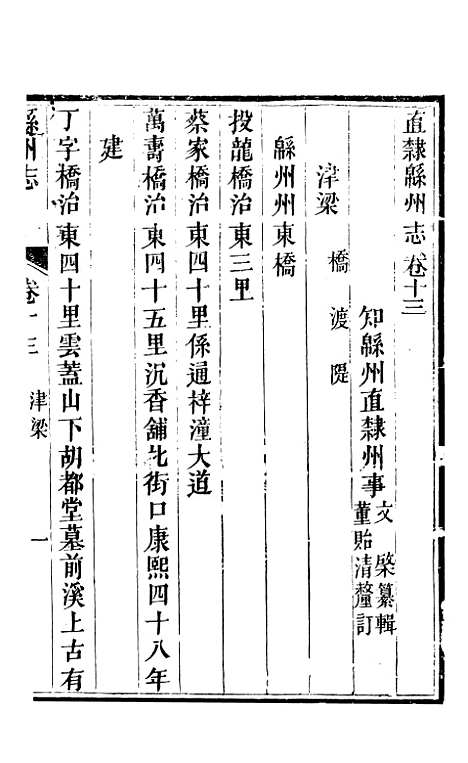 直隸緜州志卷十三
知緜州直隸州事文棨纂輯
董貽清釐訂
津梁　橋　渡　隄
緜州州東橋
投龍橋治東三里
蔡家橋治東四十里係通梓潼大道
萬壽橋治東四十五里沉香舖北街口康熙四十八年
建
丁字橋治東四十里雲蓋山下胡都堂墓前溪上古有
緜州志　卷十三　津梁　一